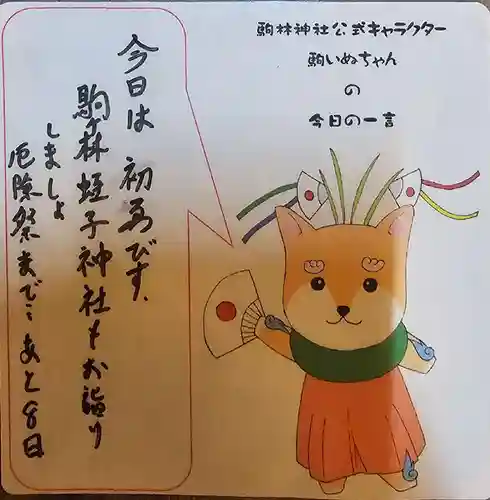 駒林神社公式キャラクター
駒いぬちゃん
の
今日の一言
今日は 初えびす、
駒ヶ林蛭子神社もお詣り
しましょ
厄除祭まで:: あと8日